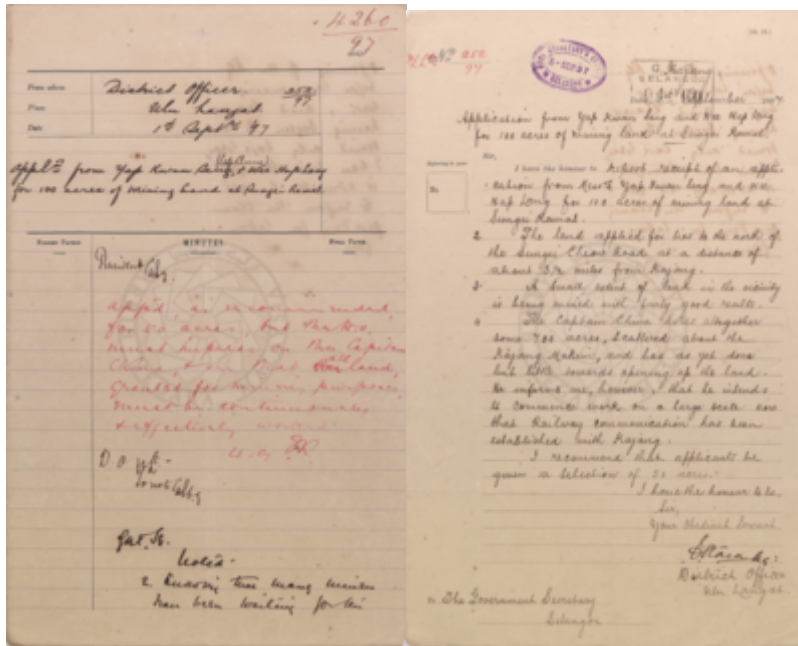 4260
97
From whom District Officer 252/97
Place Ulu Langat
Date 1st Septr 97
Appln from Yap Kwan Seng, & Wee Hap Long
for 100 acres of mining land at Sungei
MINUTES
Resident
appd as recommended,
for 50 acres, but the D.O.
must impress on the Capitan
China, that all land,
granted for mining purposes
must be continuously
& effectively worked
D.O.
to note
Govt. Sec.
Noted.
2. Knowing how many miners
have been waiting for
No 252
97
September
Application from Yap Kwan Seng and Wee Hap Long
for 100 acres of mining land at Sungei
Sir,
I have the honour to report receipt of an appli-
cation from Messrs Yap Kwan Seng and Wee
Hap Long for 100 acres of mining land at
Sungei
2. The land applied for lies to the north of
the Sungei Cheow Road at a distance of
about 3½ miles from Kajang.
3. A small extent of land in the vicinity
is being mined with fairly good results.
4. The Captain China holds altogether
some 700 acres, scattered about the
Kajang Mukim, and has as yet done
but little towards opening up the land.
He informs me, however, that he intends
to commence work on a large scale now
that Railway communication has been
established with Kajang.
I recommend that applicants be
given a selection of 50 acres.
I have the honour to be,
Sir,
Your Obedient Servant
District Officer
Ulu Langat.
The Government Secretary
Selangor